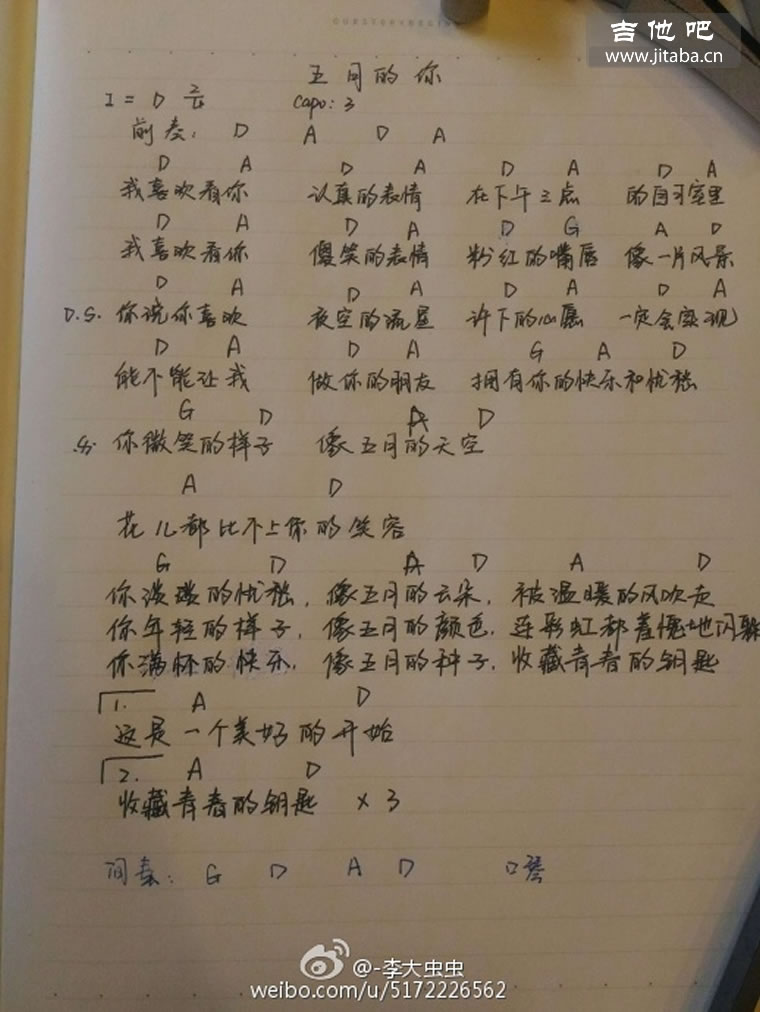 吉他吧
www.jitaba.cn
五月的你
1 = D Capo: 3
前奏: D A D A
D A D A D A D A
我喜欢看你 认真的表情 在下午三点 的自习室里
D A D A D G A D
我喜欢看你 傻笑的表情 粉红的嘴唇 像一片风景
D A D A D A D A
D.S. 你说你喜欢 夜空的流星 许下的心愿 一定会实现
D A D A G A D
能不能让我 做你的朋友 拥有你的快乐和忧愁
G D A D
你微笑的样子 像五月的天空
A D
花儿都比不上你的笑容
G D A D A D
你淡淡的忧愁, 像五月的云朵, 被温暖的风吹走
你年轻的样子, 像五月的颜色, 连彩虹都羞愧地闪躲
你满怀的快乐, 像五月的种子, 收藏青春的钥匙
1. A D
这是一个美好的开始
2. A D
收藏青春的钥匙 × 3
间奏: G D A D 口琴
@-李大虫虫
weibo.com/u/5172226562